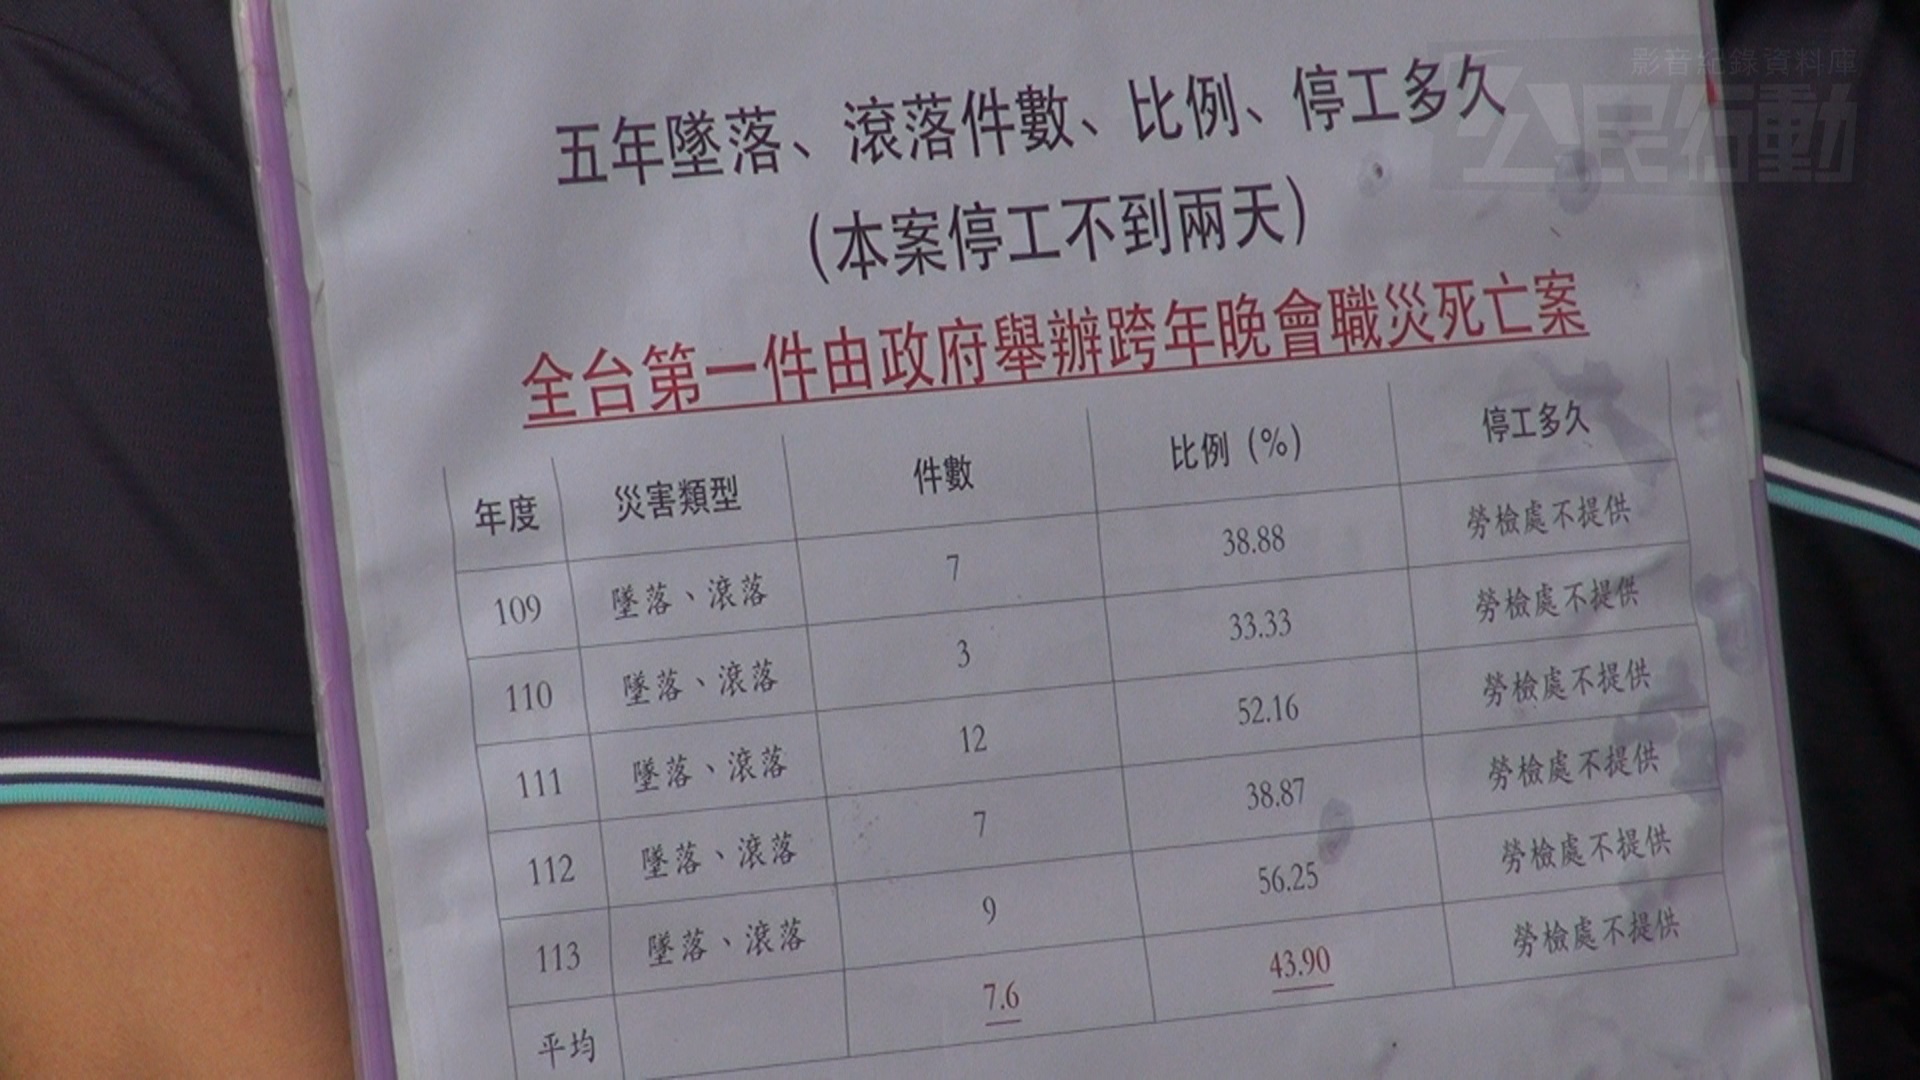 影音紀錄資料庫
公民行動
五年墜落、滾落件數、比例、停工多久
(本案停工不到兩天)
全台第一件由政府舉辦跨年晚會職災死亡案
年度 災害類型 件數 比例 (%) 停工多久
109 墜落、滾落 7 38.88 勞檢處不提供
110 墜落、滾落 3 33.33 勞檢處不提供
111 墜落、滾落 12 52.16 勞檢處不提供
112 墜落、滾落 7 38.87 勞檢處不提供
113 墜落、滾落 9 56.25 勞檢處不提供
平均 7.6 43.90 勞檢處不提供